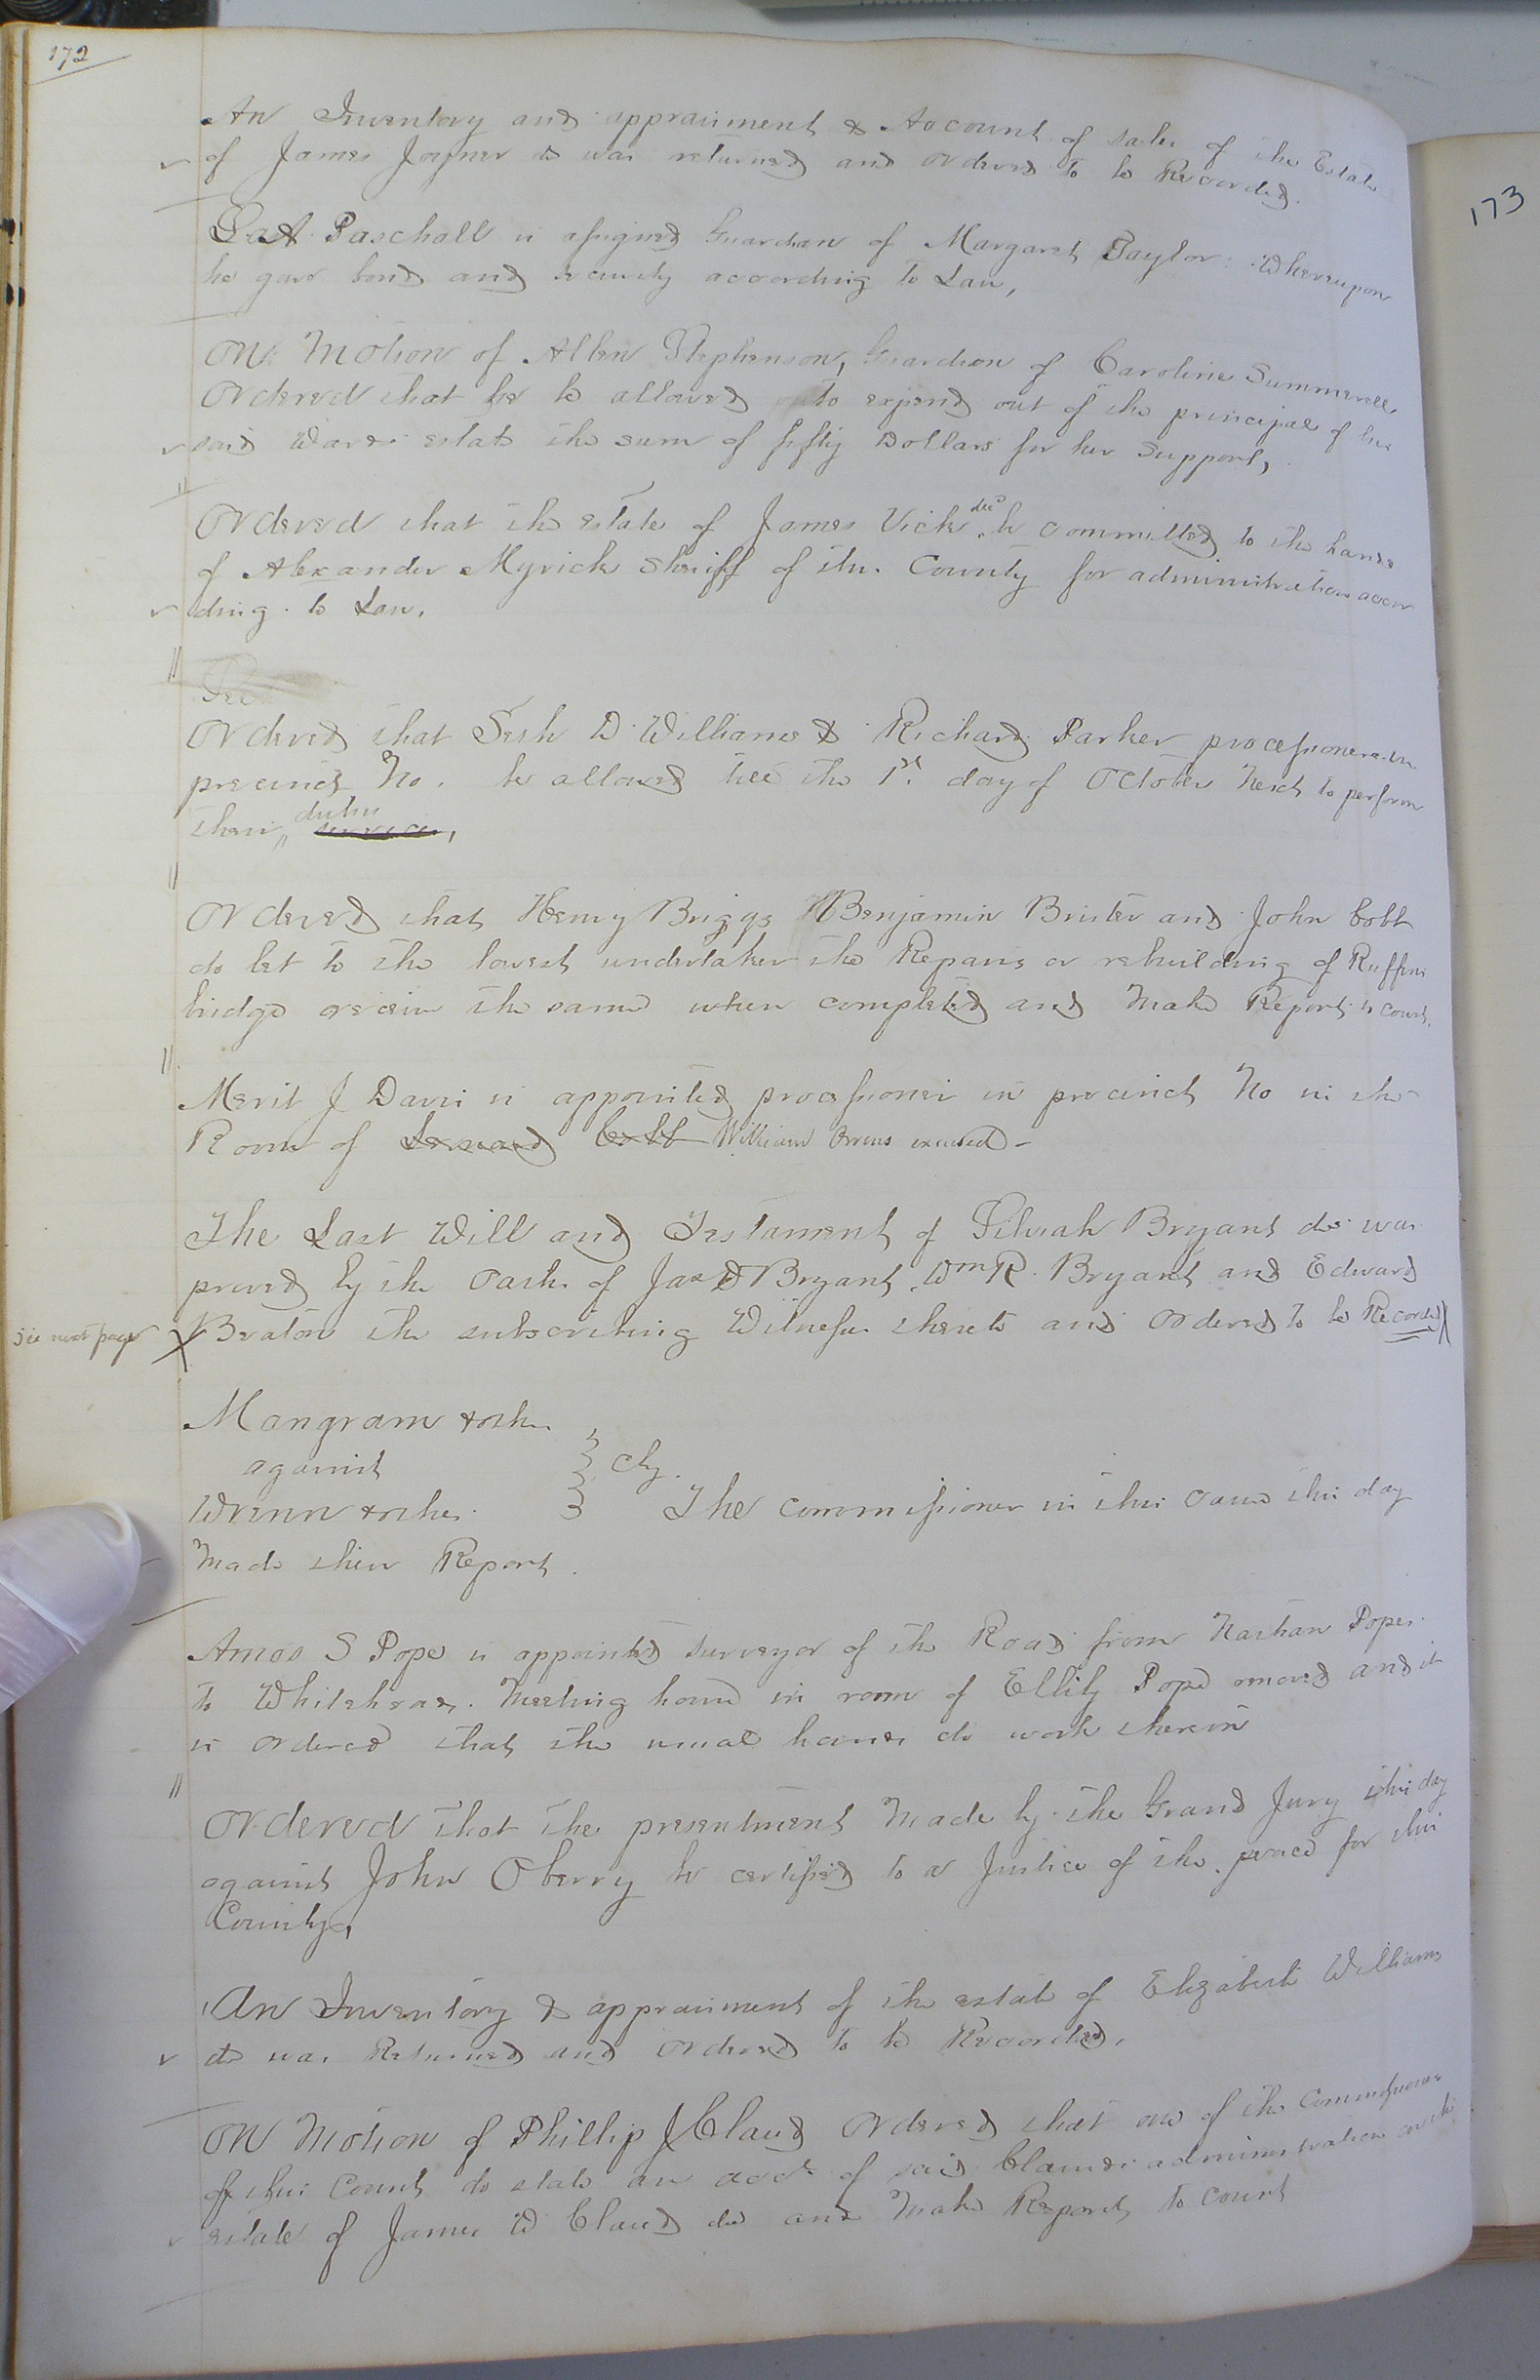 172
An Inventory and appraisment & Account of sales of the Estate
of James Joyner dec was returned and ordered to be Recorded.
Paschall is assigned Guardian of Margaret Taylor: Whereupon
he gave bond and security according to Law,
On Motion of Allen Stephenson, Guardian of Caroline Summerell,
Ordered that he be allowed to expend out of the principal of his
said Wards estate the sum of fifty Dollars for her Support,
Ordered that the estate of James Vick decd be committed to the hands
of Alexander Myrick Sheriff of this County for administration accor
ding to Law.
Ordered that Seth D Williams & Richard Parker processioners in
precinct No. be allowed till the 1st day of October Next to perform
their duties services,
Ordered that Henry Briggs Benjamin Brister and John Cobb
do let to the lowest undertaker the Repairs or rebuilding of Ruffins
bridge receive the same when completed and Make Report to court.
Merit J Davis is appointed processioner in precinct No in the
Room of Lemuard Cobb William Owens excused -
The Last Will and Testament of Silviah Bryant dec was
proved by the Oaths of Jas D Bryant Wm R. Bryant and Edward
see next page Beaton the subscribing Witnesses thereto and Ordered to be Recorded
Mangram & other
against
Chy.
Wrenn & other
The commissioners in this cause this day
Made their Report.
Amos S Pope is appointed Surveyor of the Road from Nathan Popes
to Whitehead Meeting house in room of Pope removed and it
is ordered that the usual hands do work therein
Ordered that the presentment Made by the Grand Jury this day
against John Oberry be certified to a Justice of the peace for this
County,
An Inventory & appraisment of the estate of Elizabeth Williams
dec was Returned and Ordered to be Recorded,
On Motion of Phillip J Claud Ordered that one of the Commissioners
of this Court do state an acct of said Clauds administration on the
estate of James W Claud dec and Make Report to court
173